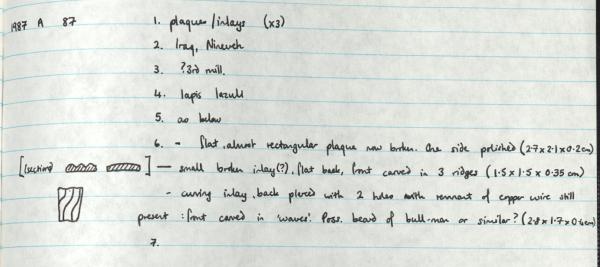 1987 A 87
1. plaques/inlays (x3)
2. Iraq, Nineveh
3. ?3rd mill.
4. lapis lazuli
5. as below
6. - flat, almost rectangular plaque now broken. One side polished (2.7 x 2.1 x 0.2 cm)
[(section) ] - small broken inlay(?), flat back, front carved in 3 ridges (1.5 x 1.5 x 0.35 cm)
- curving inlay, back pierced with 2 holes with remnant of copper wire still
present : front carved in 'waves'. Poss. beard of bull-man or similar? (2.8 x 1.7 x 0.6 cm)
7.